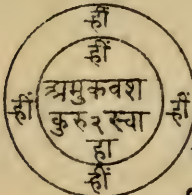 ह्रीं
ह्रीं
ह्रीं
अमुकवश
कुरु२ स्वा
हा
ह्रीं
ह्रीं